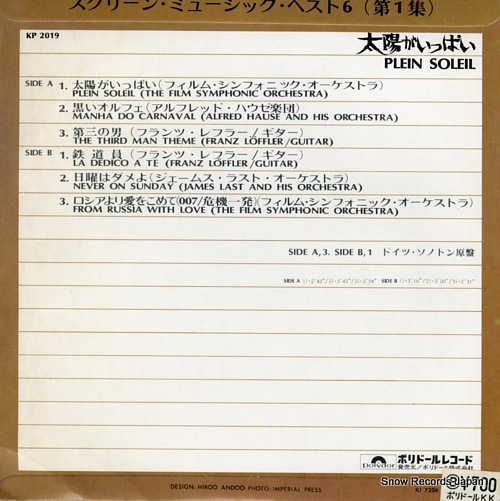 スクリーン・ミュージック・ベスト6(第1集)
KP 2019
太陽がいっぱい
PLEIN SOLEIL
SIDE A 1. 太陽がいっぱい(フィルム・シンフォニック・オーケストラ)
PLEIN SOLEIL (THE FILM SYMPHONIC ORCHESTRA)
2. 黒いオルフェ(アルフレッド・ハウゼ楽団)
MANHA DO CARNAVAL (ALFRED HAUSE AND HIS ORCHESTRA)
3. 第三の男(フランツ・レフラー/ギター)
THE THIRD MAN THEME (FRANZ LÖFFLER/GUITAR)
SIDE B 1. 鉄道員(フランツ・レフラー/ギター)
LA DEDICO A TE (FRANZ LÖFFLER/GUITAR)
2. 日曜はダメよ(ジェームス・ラスト・オーケストラ)
NEVER ON SUNDAY (JAMES LAST AND HIS ORCHESTRA)
3. ロシアより愛をこめて(007/危機一発)(フィルム・シンフォニック・オーケストラ)
FROM RUSSIA WITH LOVE (THE FILM SYMPHONIC ORCHESTRA)
SIDE A, 3. SIDE B, 1 ドイツ・ソノトン原盤
SIDE A SIDE B
polydor ポリドールレコード
発売元/ポリドール株式会社
DESIGN: HIROO ANDOO PHOTO: IMPERIAL PRESS
KI 7206
¥700
ポリドールKK
Snow Records Japan